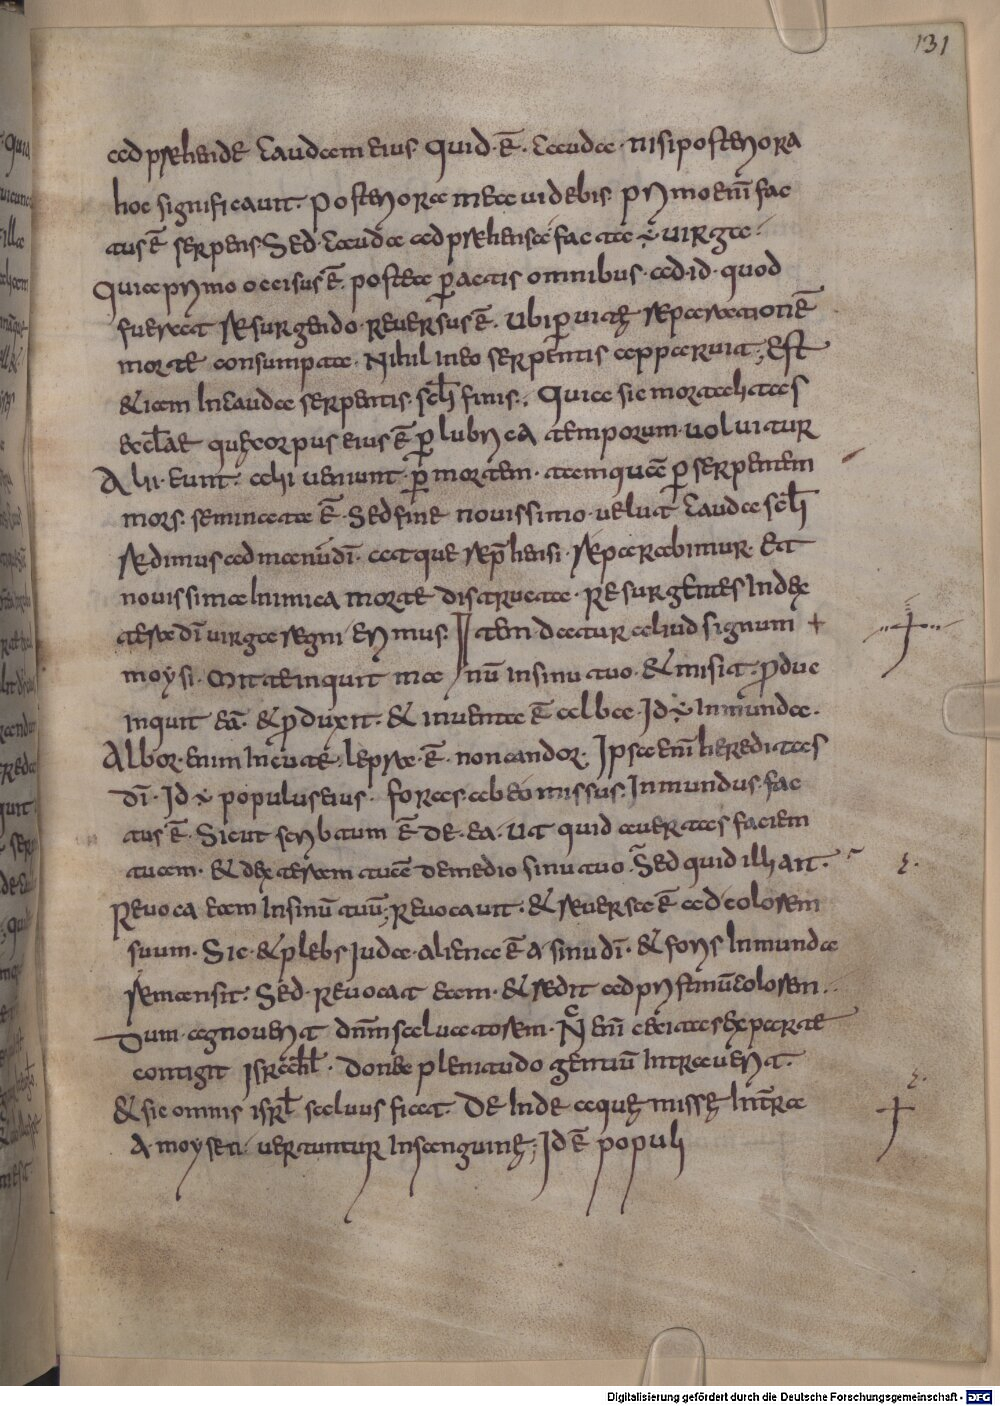 131
adprehende caudam eius. quid. ē. cauda. nisi posteriora
hoc significavit. posteriora mea videbis. primo enī fac
tus ē serpens Sed. cauda adprehensa facta ÷ virga.
Quia primo occisus ē. postea ꝑactis omnibus. ad id. quod
fuerat resurgendo. reversus ē. Ubi ꝑ vitę reparationē
morte consumpta. Nihil in eo serpentis apparuit; Est
& iam In cauda serpentis. scłi finis;. Quia sic mortalitas
eclae quę corpus eius ē ꝑ lubrica temporum. volvitur
Alii. eunt. alii veniunt. ꝑ mortem. tamquā ꝑ serpentem
mors. seminata ē. Sed fine novissimo. velut cauda scłi
redimus ad manū dī. atque reprehensi. reparabimur. Et
novissima Inimica morte distructa. Resurgentes In dex
tera dī virga regni erimus. Item datur aliud signum +
moysi. Mitte inquit manū in sinu tuo. & misit. produc
inquit eā. & produxit. & inventa ē alba. Id ÷ Inmunda.
Albor. enim In cute. leprae. ē. non candor. Ipsa enī hereditas
dī. Id ÷ populus eius. foras. ab eo missus. Inmundus. fac
tus ē. Sicut scribtum ē de. ea. Ut quid avertas faciem
tuam. & dexteram tuā de medio sinu tuo. Sed quid illi ait.
Revoca eam In sinū tuū; Revocavit. & reversa ē ad colorem
suum. Sic & plebs Iudea. aliena ē a sinu dī. & foris Inmunda
remansit. Sed. revocat eam. & redit ad pristinū colorem..
Dum agnoverit dnm salvatorem. Nā enī caecitas ex parte
contigit Israchł. donec plenitudo gentiū Intraverit.
& sic omnis isrł salvus fiat. De Inde aquę missę In trā
A moysen. vertuntur In sanguinē; Id ē populi